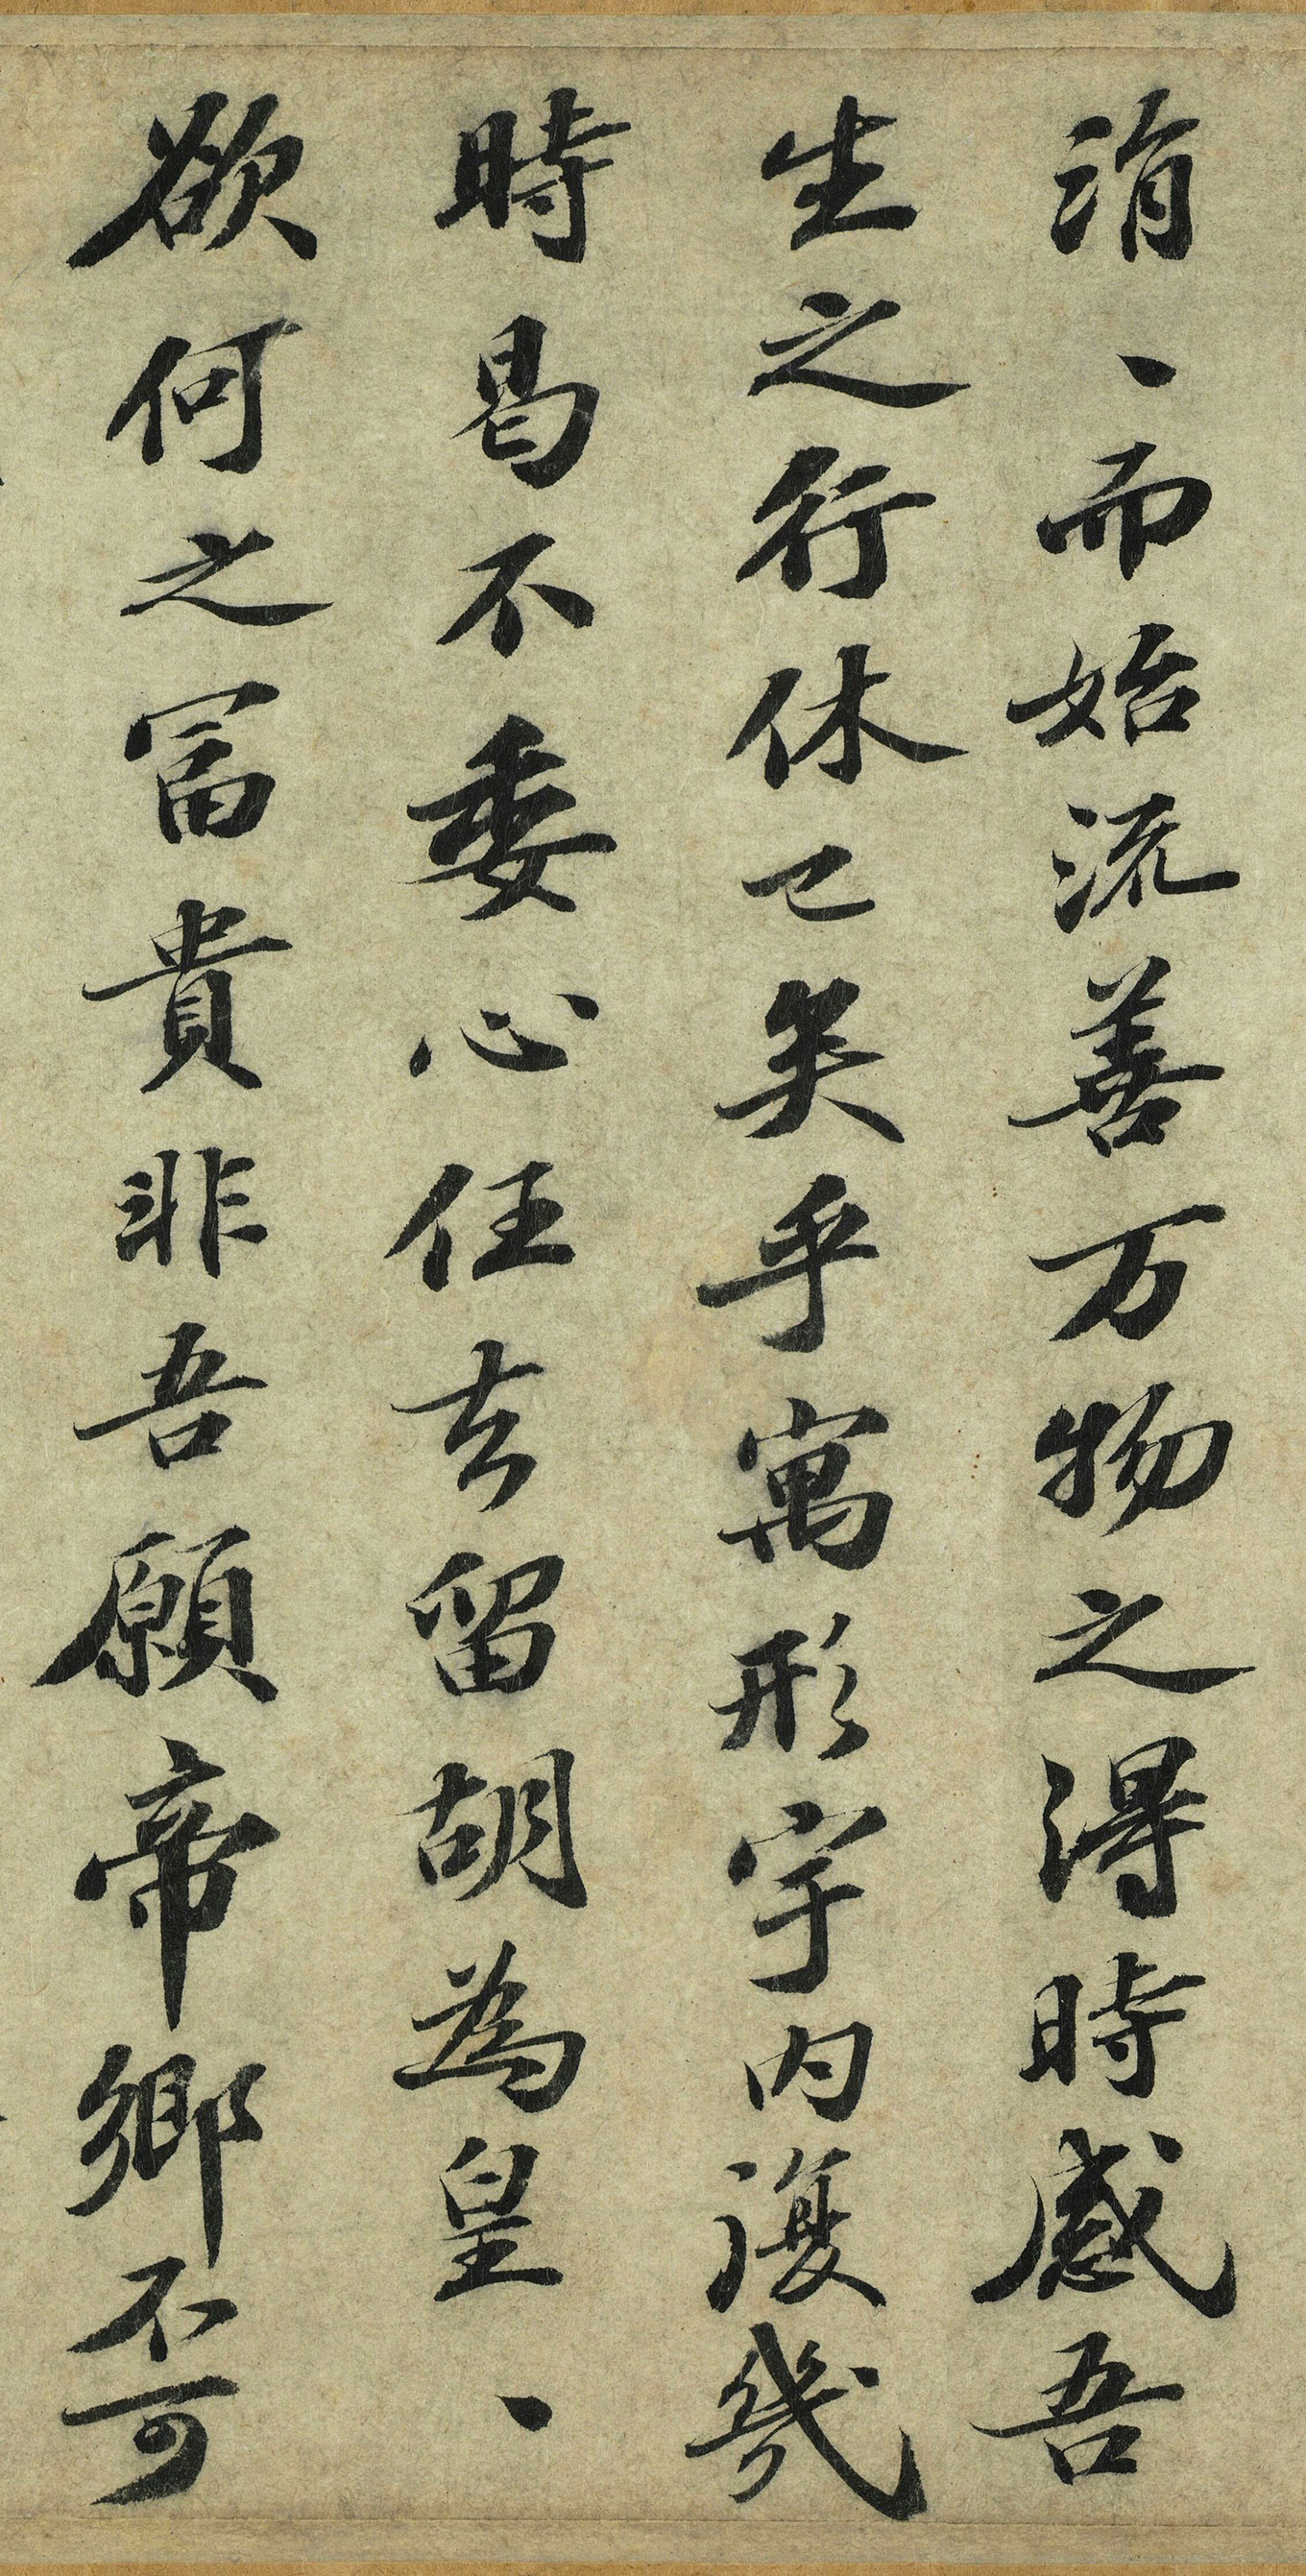 涓、而始流善万物之得時感吾
生之行休已矣乎寓形宇内復幾
時曷不委心任去留胡為皇、
欲何之富貴非吾願帝鄉不可